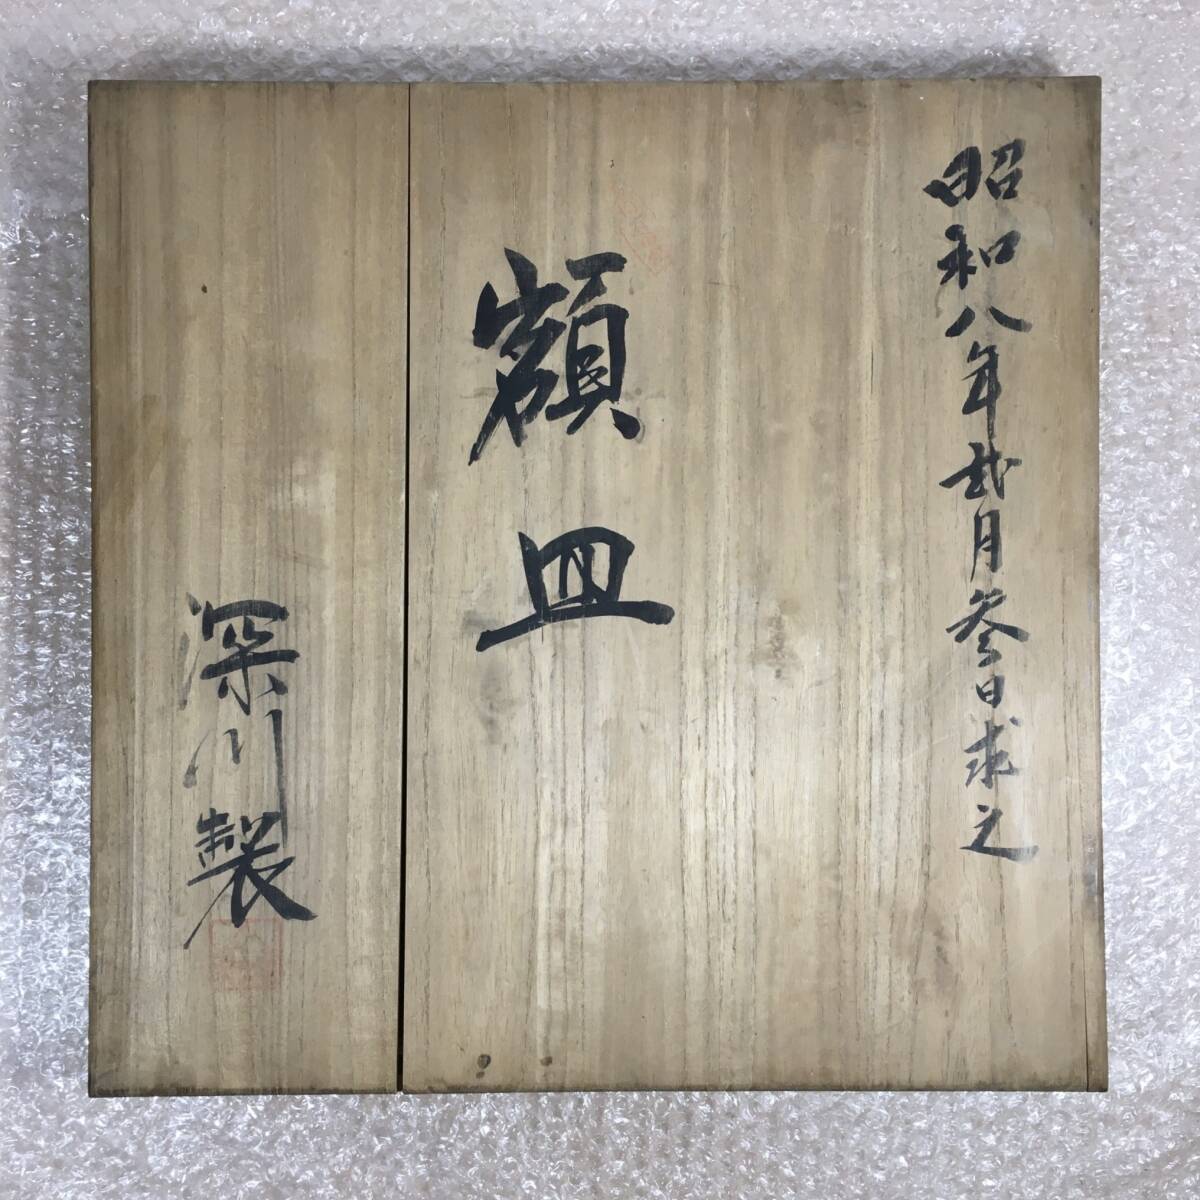 昭和八年弐月参日求之
額皿
深川製